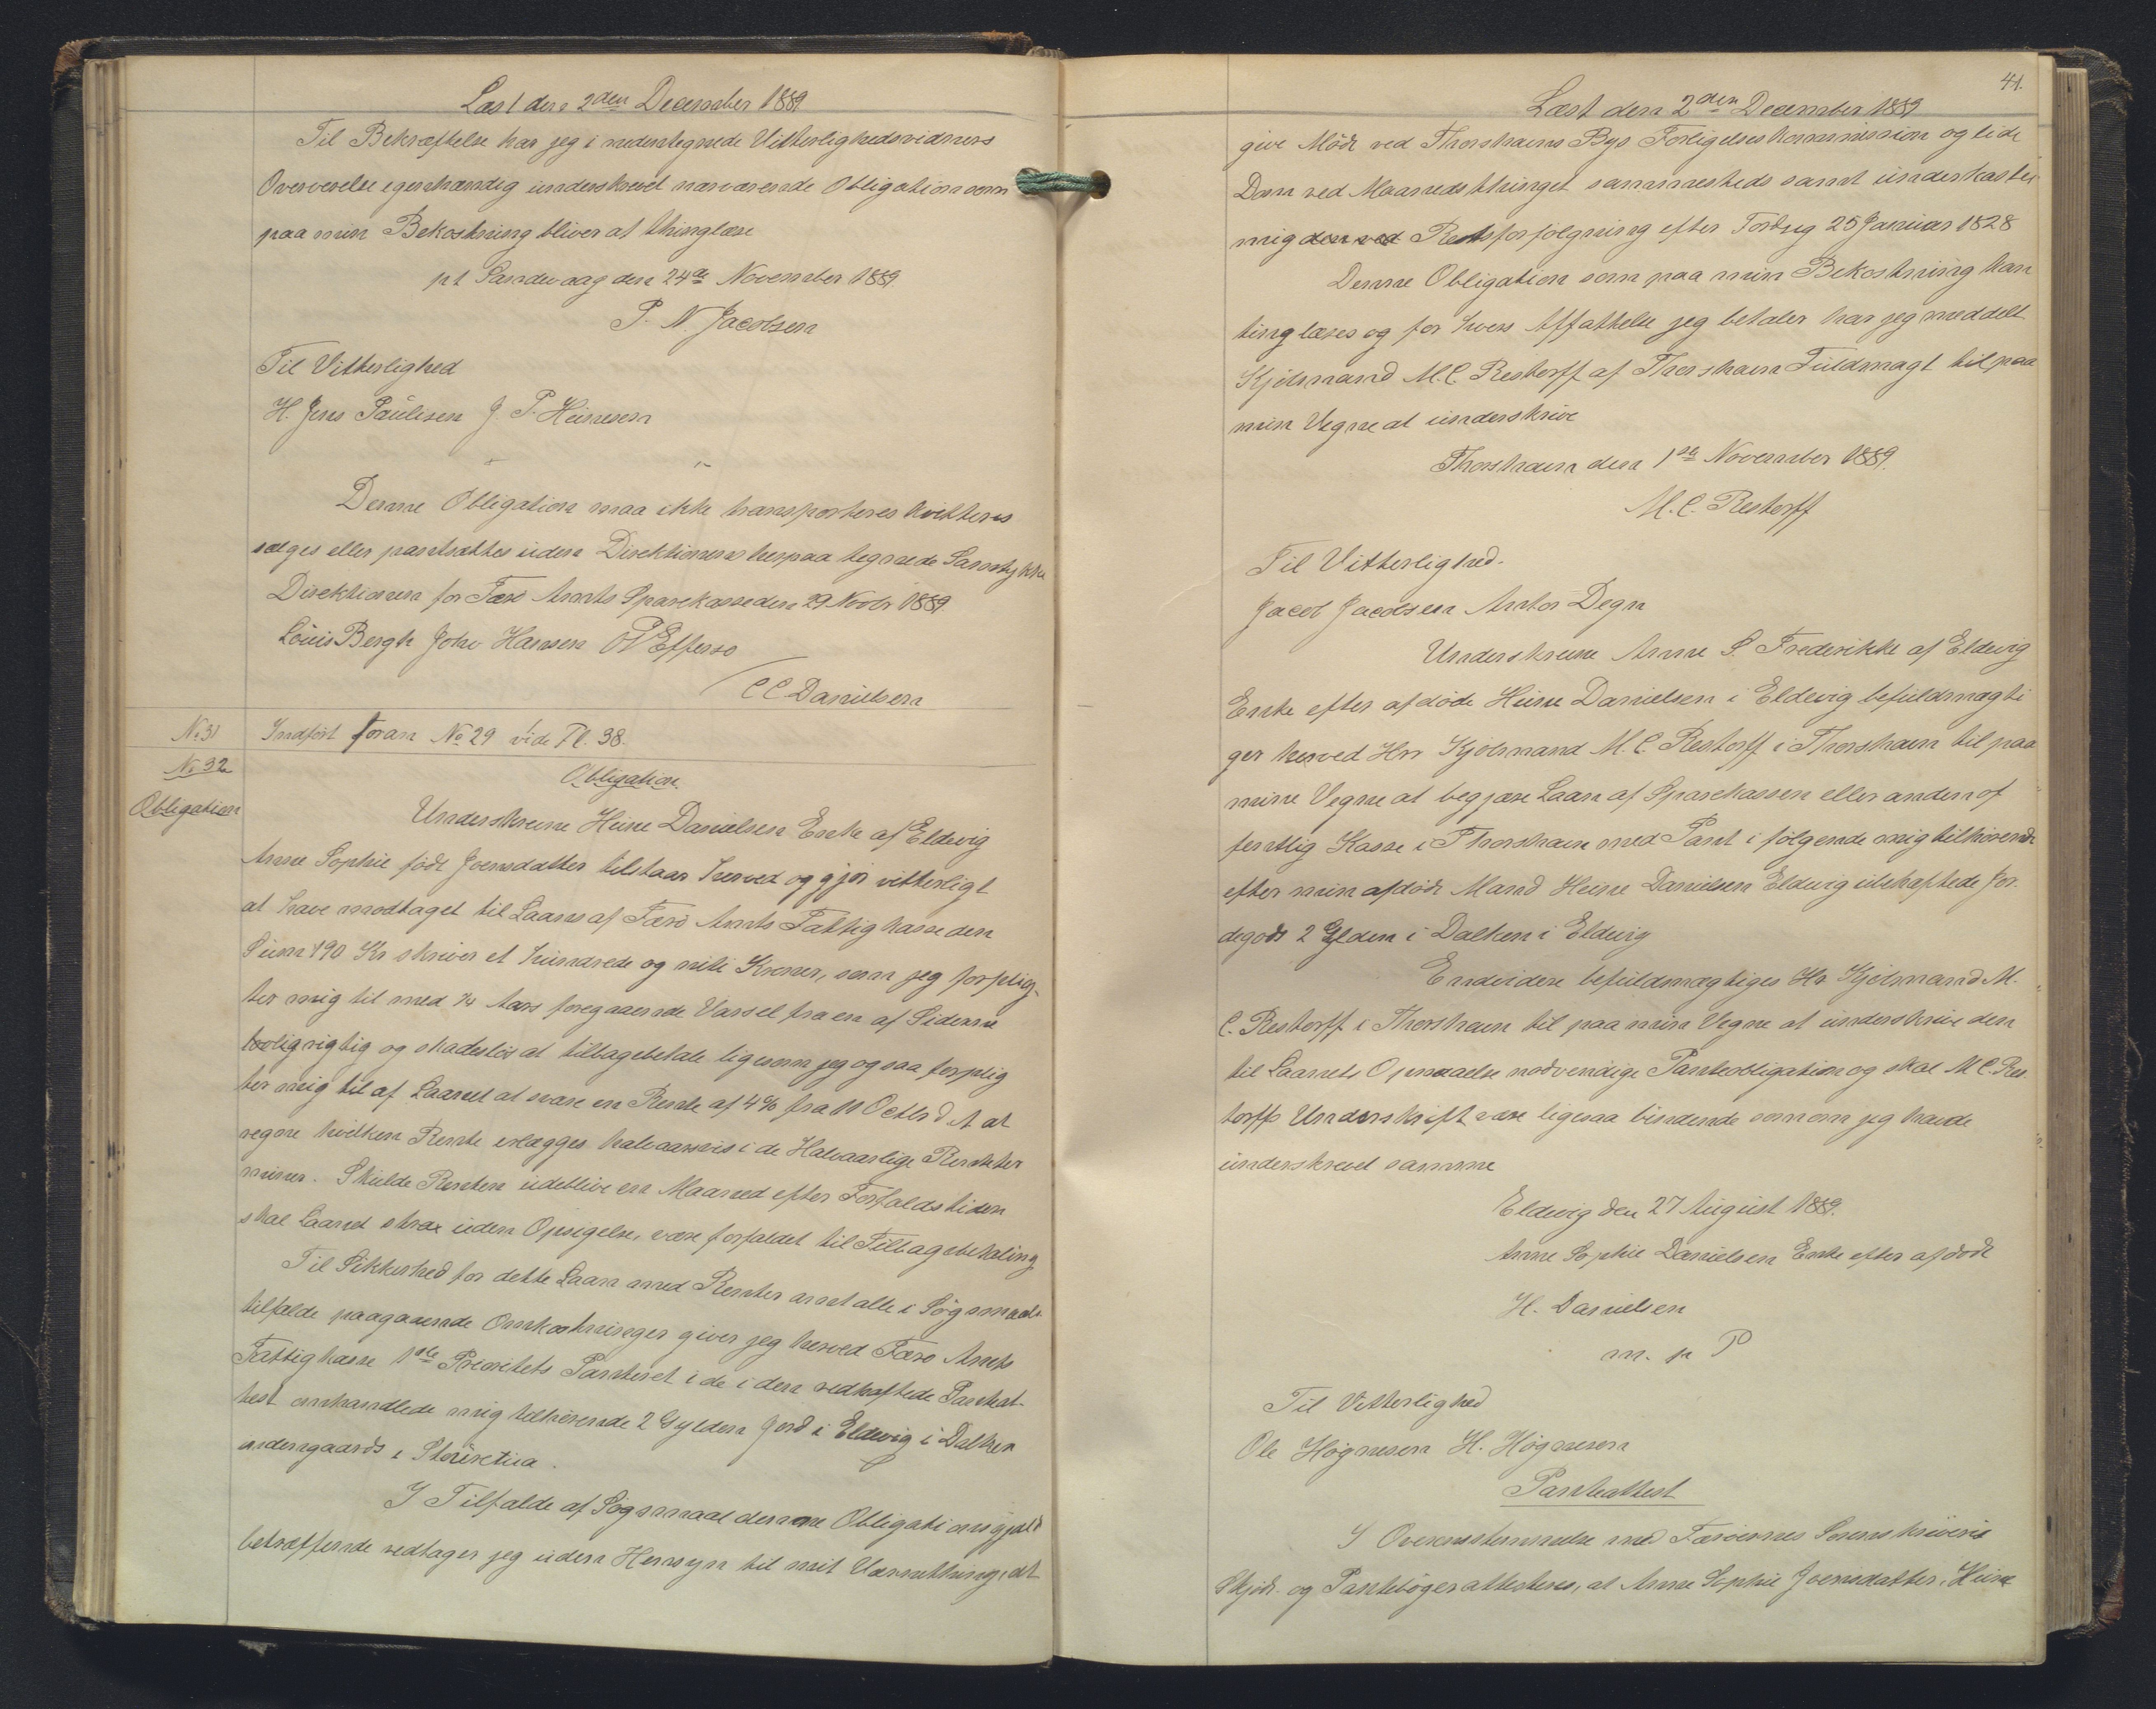 Læst den 2den December 1889
Til Bekræftelse har jeg i nedentegnede Vitterlighedsvidners
Overværelse egenhændig underskrevet nærværende Obligation som
paa min Bekostning bliver at thinglæse
pt Sandevaag den 24de November 1889.
P. N. Jacobsen
Til Vitterlighed
H. Jens Paulesen J. P. Heinesen
Denne Obligation maa ikke transporteres kvitteres
sælges eller pantsættes uden Direktionens herpaa tegnede Samtykke
Direktionen for Færø Amts Sparekasse den 29 Novbr 1889
Louis Bergh John Hansen P Effersø
C C Danielsen
No 31 Indført foran No 29 vide Pl. 38.
No 32
Obligation
Obligation
Underskrevne Heine Danielsen Enke af Eldevig
Anne Sophie født Joensdatter tilstaar herved og gjør vitterligt
at have modtaget til Laans af Færø Amts Fattigkasse den
Sum 190 Kr skriver et hundrede og niti Kroner, som jeg forplig-
ter mig til med 1/4 Aars foregaaende Varsel fra en af Siderne
lovlig rigtig og skadesløs at tilbagebetale ligesom jeg ogsaa forplig
ter mig til af Laanet at svare en Rente af 4% fra 11 Octbr d. A at
regne hvilken Rente erlægges halvaarsvis i de Halvaarlige Renteter
miner. Skulde Renten udeblive en Maaned efter Forfaldstiden
skal Laanet strax uden Opsigelse, være forfaldet til Tilbagebetaling
Til Sikkerhed for dette Laan med Renter samt alle i Søgsmaals
tilfælde paagaaende Omkostninger giver jeg herved Færø Amts
Fattigkasse 1ste Prioritets Panteret i de i den vedhæftede Panteat-
test omhandlede mig tilhørende 2 Gylden Jord i Eldevig i Dalken
undengaards i
I Tilfælde af Søgsmaal denne Obligations gjæld
betræffende vedtager jeg uden Hensyn til mit Værnething, at
41.
Læst den 2den December 1889
give Møde ved Thorshavns Bys Forligelseskommission og lide
Dom ved Maanedsthinget sammesteds samt underkaster
mig den ved Retsforfølgning efter Fordng 25 Januar 1828
Denne Obligation som paa min Bekostning kan
tinglæses og for hvis Affattelse jeg betaler har jeg meddelt
Kjøbmand M. C. Restorff af Thorshavn Fuldmagt til paa
min Vegne at underskrive
Thorshavn den 1ste November 1889.
M. C. Restorff
Til Vitterlighed.
Jacob Jacobsen Anton Degn
Underskrevne Anne S. Frederikke af Eldevig
Enke efter afdøde Heine Danielsen i Eldevig befuldmægti
ger herved Hrr Kjøbmand M. C. Restorff i Thorshavn til paa
mine Vegne at begjære Laan af Sparekassen eller anden of
fentlig Kasse i Thorshavn med Pant i følgende mig tilhørende
efter min afdøde Mand Heine Danielsen Eldevig ubehæftede Jor
degods 2 Gylden i Dalken i Eldevig
Endvidere befuldmægtiges Hr Kjøbmand M.
C. Restorff i Thorshavn til paa min Vegne at underskrive den
til Laanets Opnaaelse nødvendige Panteobligation og skal M C. Res
torffs Underskrift være ligesaa bindende som om jeg havde
underskrevet samme
Eldevig den 27 August 1889.
Anne Sophie Danielsen Enke efter afdøde
H. Danielsen
m. p P
Til Vitterlighed
Ole Høgnesen H. Høgnesen
Panteattest
I Overensstemmelse med Færøernes Sorenskriveris
Skjøde- og Pantebøger attesteres, at Anne Sophie Joensdatter, Heine